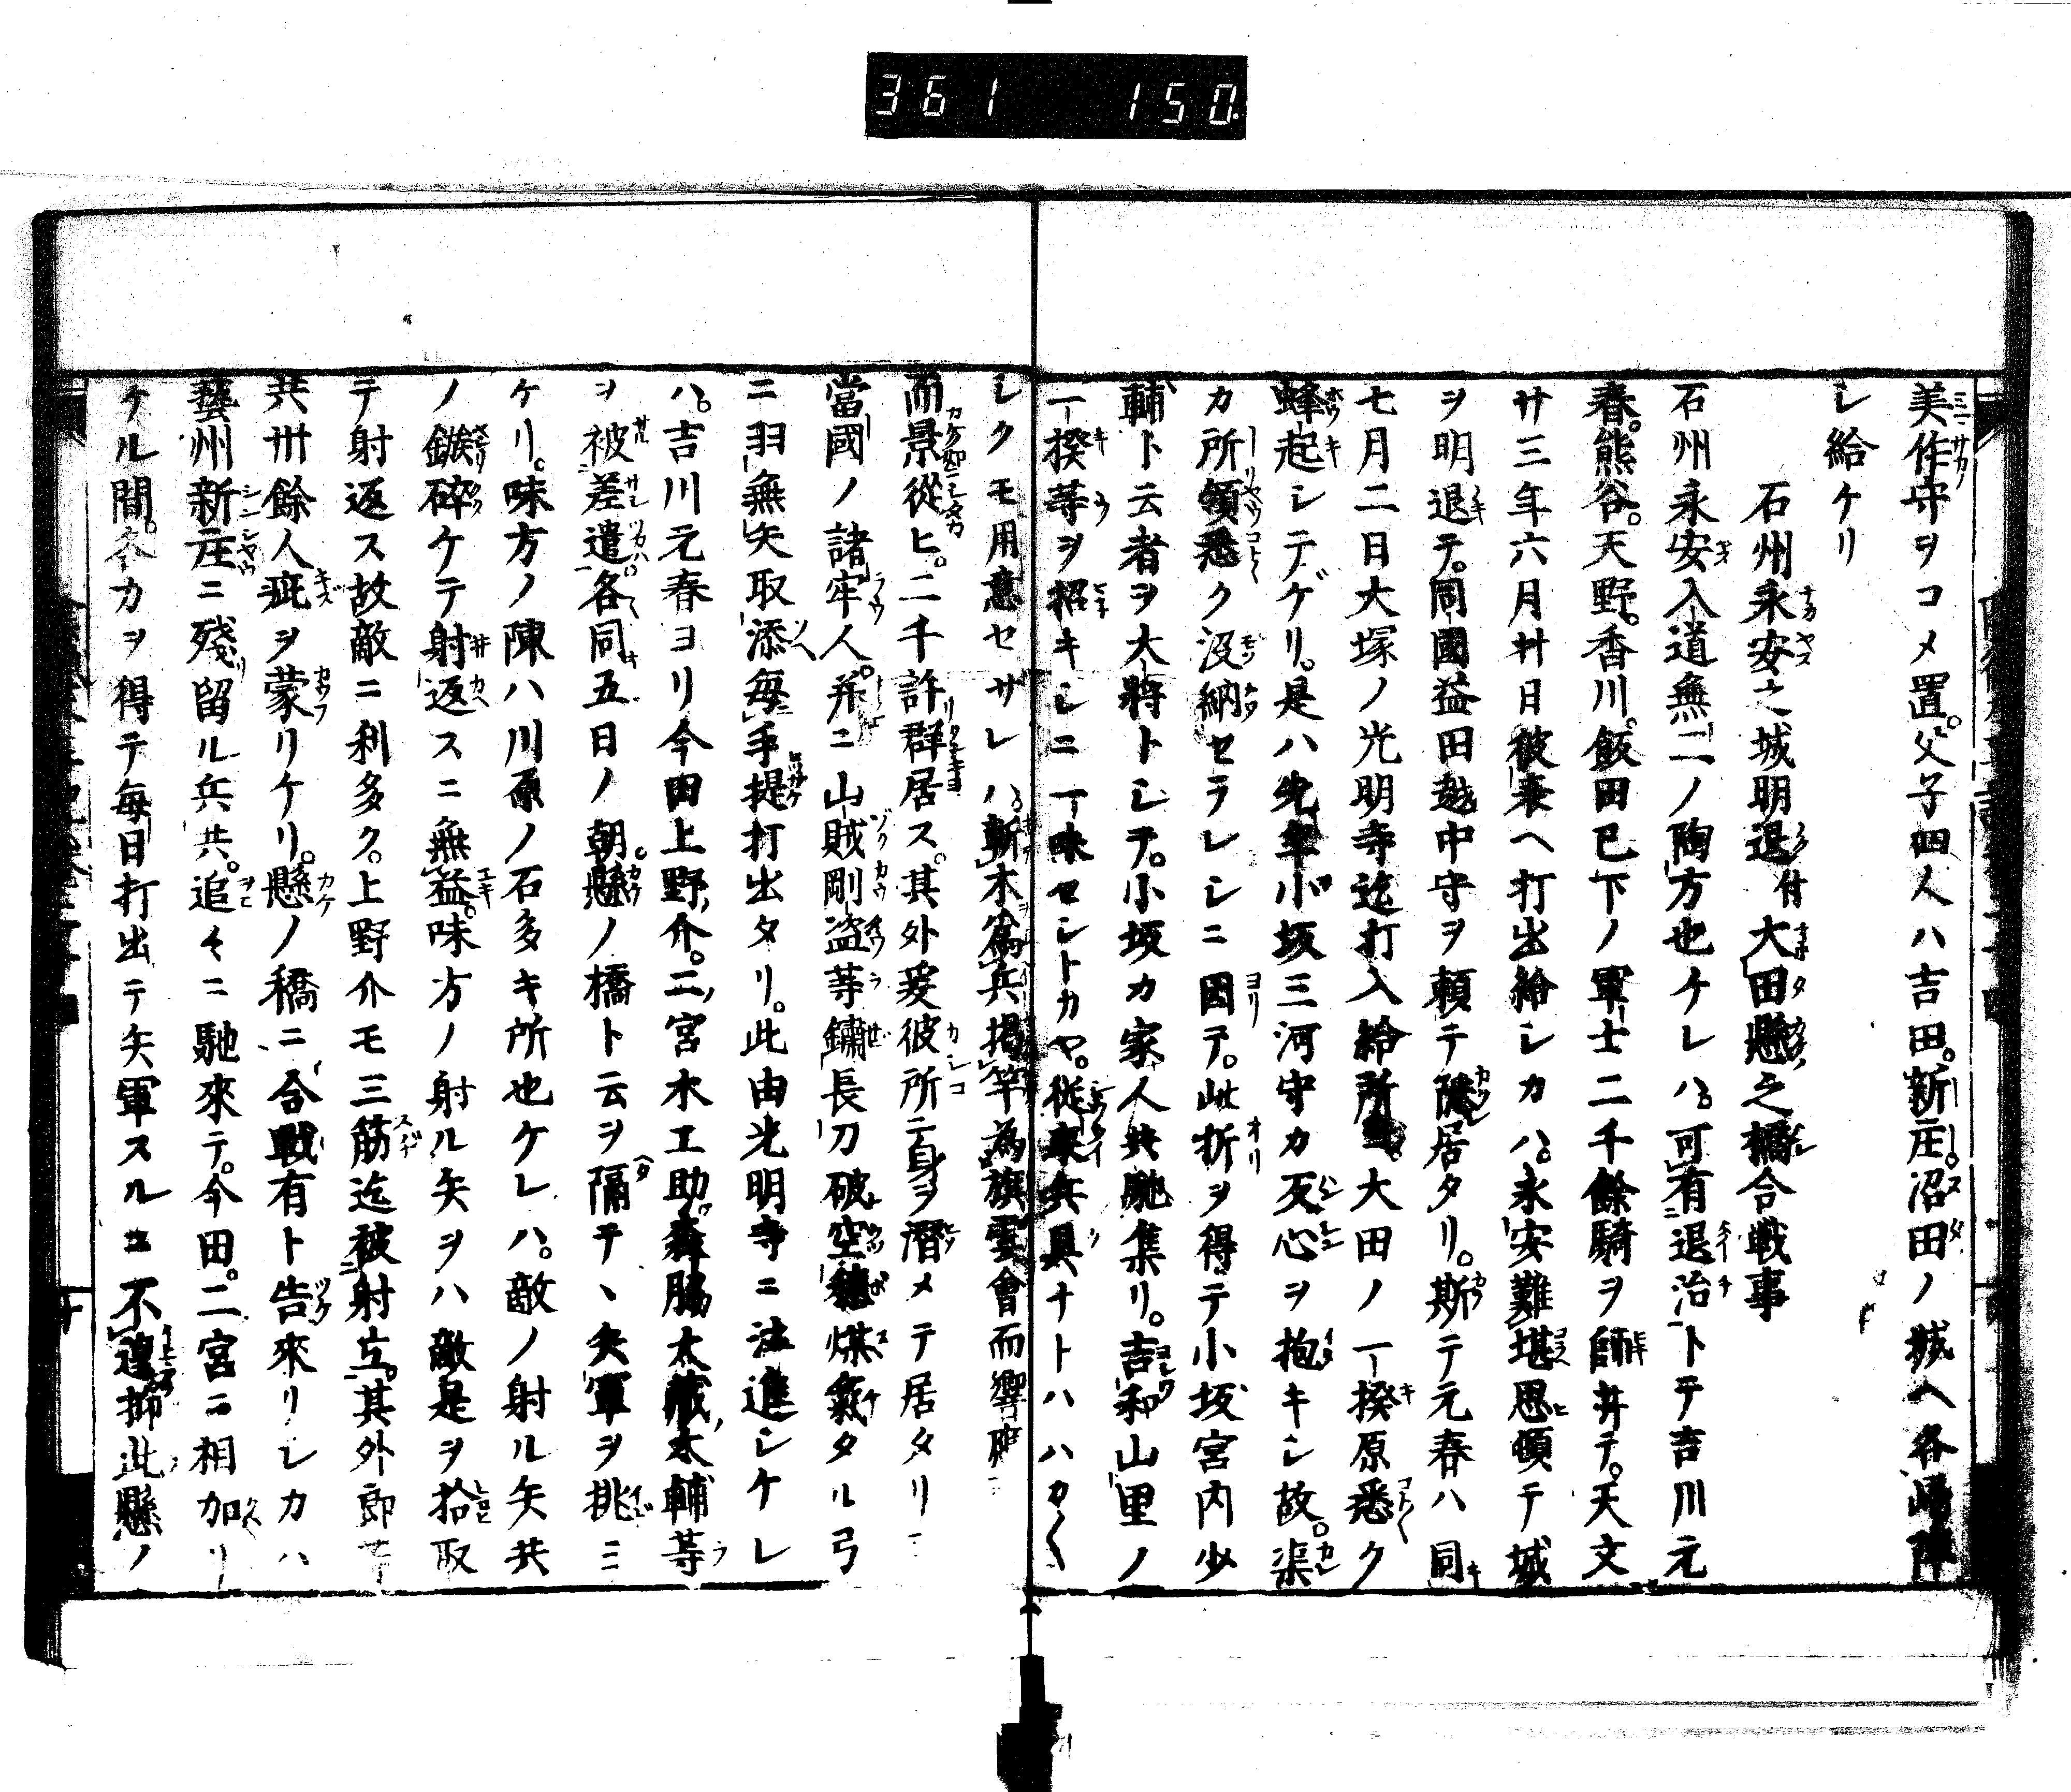 361 150
美作守ヲコメ置。父子四人ハ吉田。新庄。沼田ノ城ヘ各歸陣
シ給ケリ
石州永安之城明退付大田懸之橋合戦事
石州永安入道無二ノ陶方也ケレハ。可有退治トテ吉川元
春。熊谷。天野。香川。飯田已下ノ軍士二千餘騎ヲ師井テ。天文
廿三年六月廿日彼表ヘ打出給シカハ。永安難堪思頓テ城
ヲ明退テ。同國益田越中守ヲ頼テ隠居タリ。斯テ元春ハ同
七月二日大塚ノ光明寺迄打入給所。大田ノ一揆原悉ク
蜂起シテゲリ。是ハ先年小坂三河守カ反心ヲ抱キシ故。渠
カ所領悉ク没納セラレシニ因テ。此折ヲ得テ小坂宮内少
輔ト云者ヲ大將トシテ。小坂カ家人共馳集リ。吉和山里ノ
一揆等ヲ招キシニ一味セシトカヤ。従來兵具ナトハハカ〱
シクモ用意セザレハ。斬木為兵掲竿為旗雲會而響應
而景從ヒ。二千許群居ス。其外爰彼所ニ身ヲ潛メテ居タリ
當國ノ諸牢人。并ニ山賊剛盗等鏽長刀破空穂煤氣タル弓
ニ羽無矢取添毎手提打出タリ。此由光明寺ニ注進シケレ
ハ。吉川元春ヨリ今田上野介。二宮木工助。森脇大蔵太輔等
ヲ被差遣。各同五日ノ朝。懸ノ橋ト云ヲ隔テヽ矢軍ヲ挑ミ
ケリ。味方ノ陳ハ川原ノ石多キ所也ケレハ。敵ノ射ル矢共
ノ鏃碎ケテ射返スニ無益。味方ノ射ル矢ヲハ敵是ヲ拾取
テ射返ス故敵ニ利多ク。上野介モ三筋迄被射立。其外郎等
共卅餘人疵ヲ蒙リケリ。懸ノ橋ニ合戰有ト告來リシカハ
藝州新庄ニ殘留ル兵共。追々ニ馳來テ。今田。二宮ニ相加リ
ケル間。各カヲ得テ毎日打出テ矢軍スルニ不遑抑此懸ノ